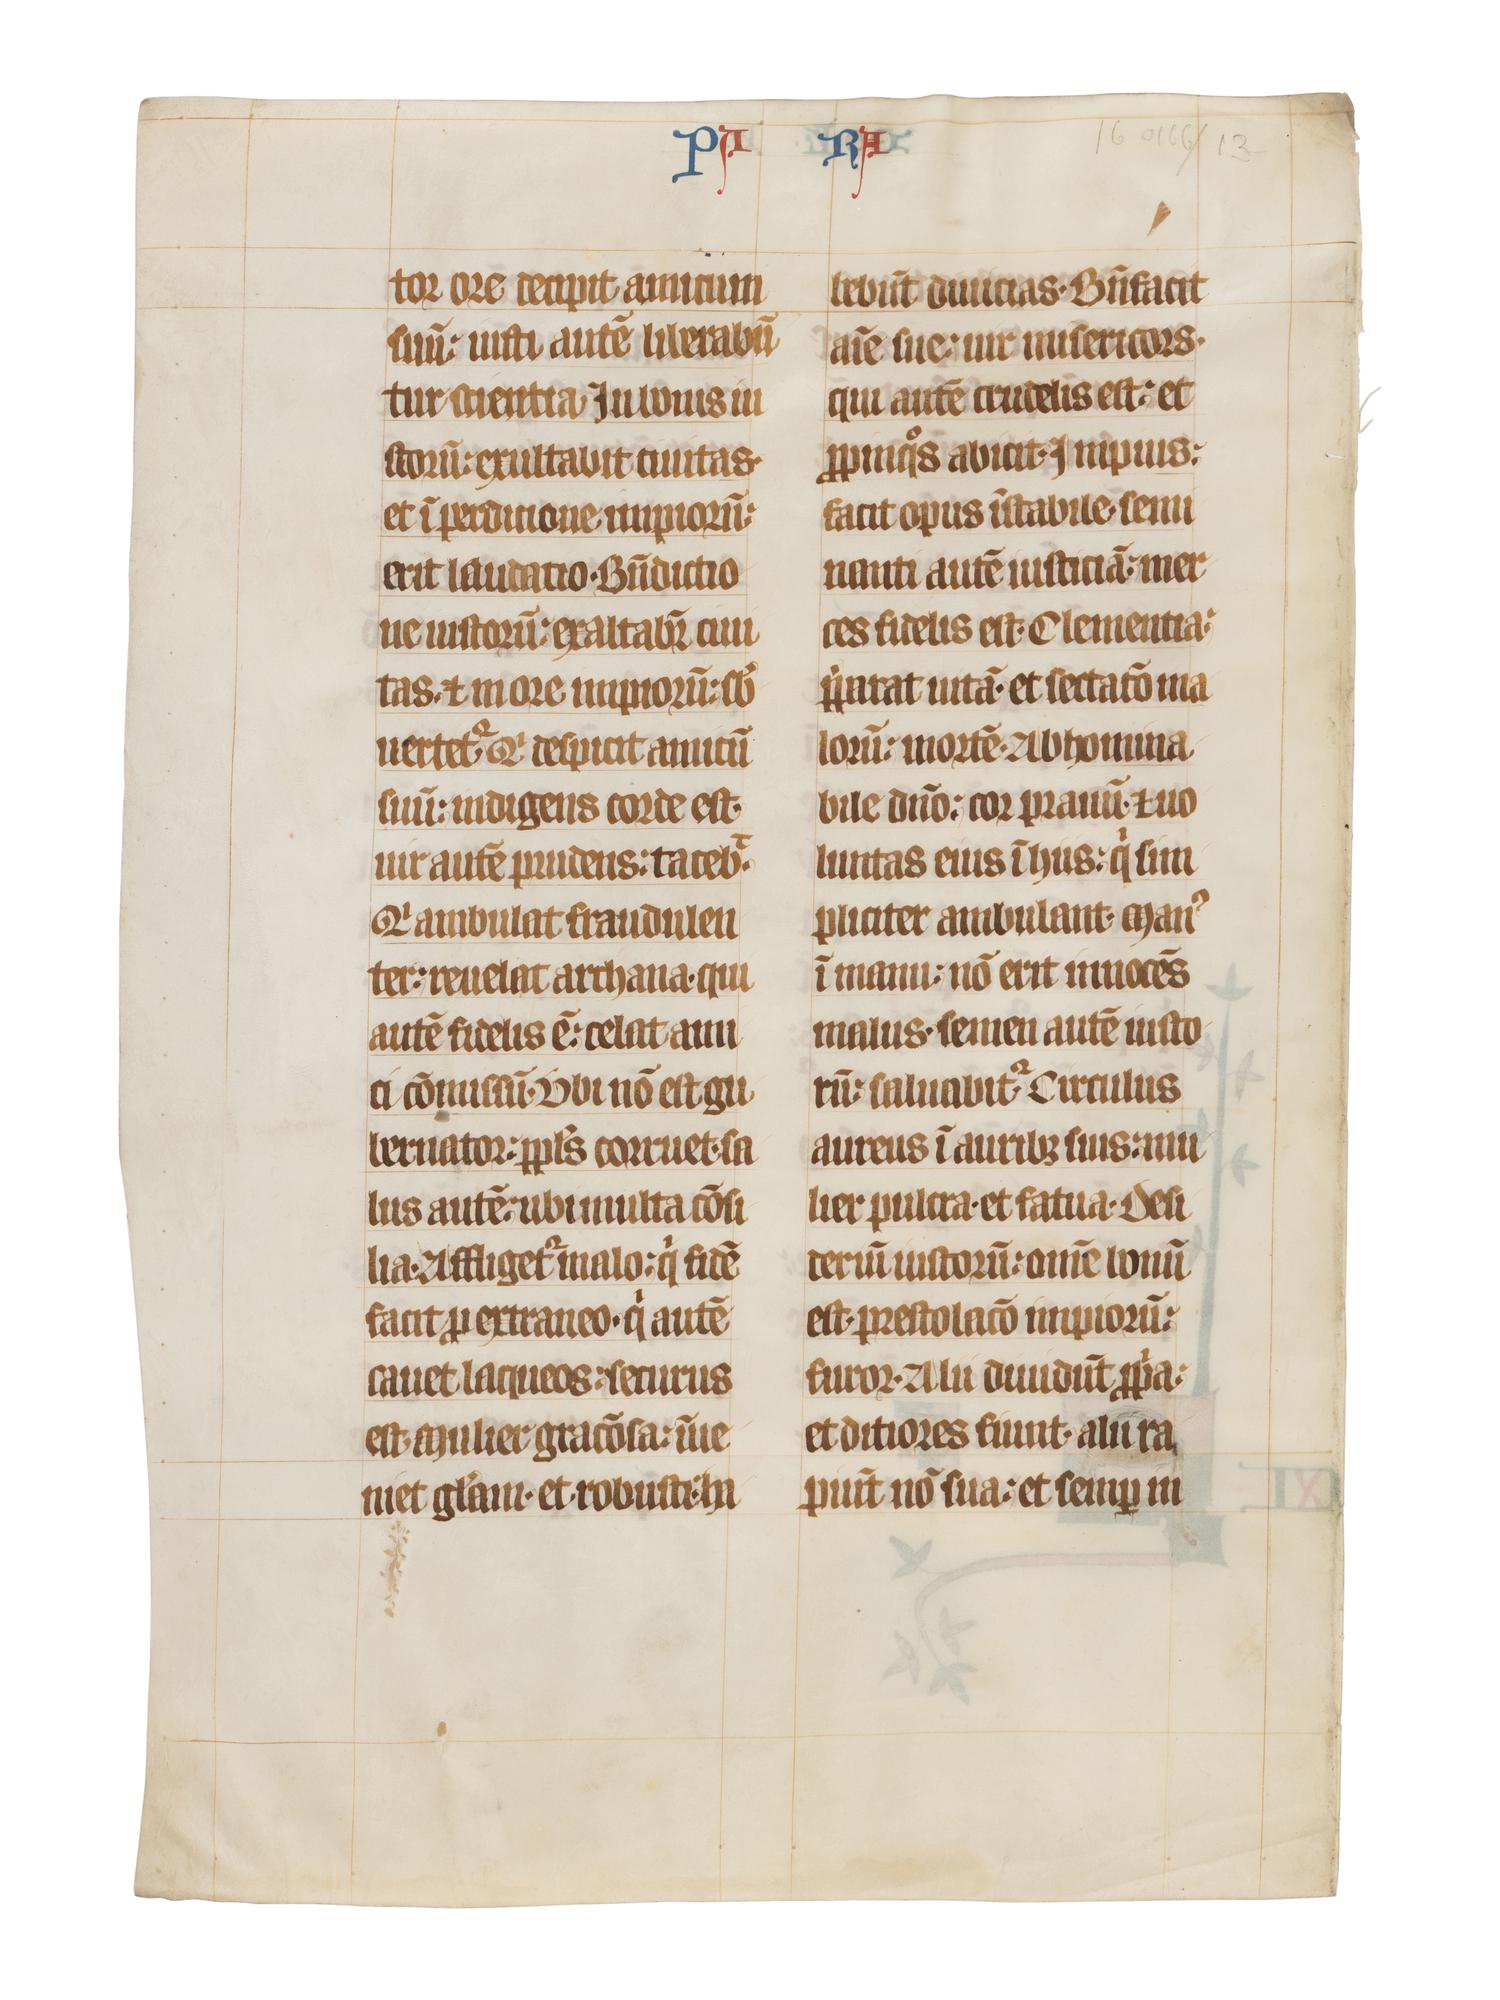 PA RA
16 0166/13
tor ore decipit amicum
suū: iusti autē liberabū
tur scientia. In bonis iu
storū: exultabit ciuitas.
et ī perditione impiorū:
erit laudatio. Bn̄dictio
ne iustorū: exaltabr̄ ciui
tas. ⁊ in ore impiorū: sb̓
uertet᷑. Qͥ despicit amicū
suū: indigens corde est.
uir autē prudens: taceb᷑.
Qͥ ambulat fraudulen
ter: reuelat archana. qui
autē fidelis ē: celat ami
ci cōmissū. Vbi nō est gu
bernator: ppl̓s corruet. sa
lus autē: ubi multa cōsi
lia. Affliget᷑ malo: qͥ fidē
facit ꝓ extraneo. qͥ autē
cauet laqueos: securus
est. Mulier gracōsa: īue
niet gl̓am. et robusti: ha
lebūt diuicias. Bn̄facit
aīe sue: uir misericors.
qui autē crudelis est: et
ꝓpinqͦs abicit. Impius:
facit opus īstabile. semi
nanti autē iusticiā: mer
ces fidelis est. Clementia:
p̓parat uitā. et sectatō ma
lorū: mortē. Abhomina
bile dn̄o: cor prauū. ⁊ uo
luntas eius ī hiis: qͥ sim
pliciter ambulant. Man᷒
ī manu: nō erit innocēs
malus. semen autē iusto
rū: saluabit᷑. Circulus
aureus ī auribꝫ suis: mu
lier pulcra. et fatua. Desi
deriū iustorū: om̄e bonū
est. prestolacō impiorū:
furor. Alii diuidūt ꝓp̓a:
et ditiores fiunt. alii ra
piūt nō sua: et semꝑ in